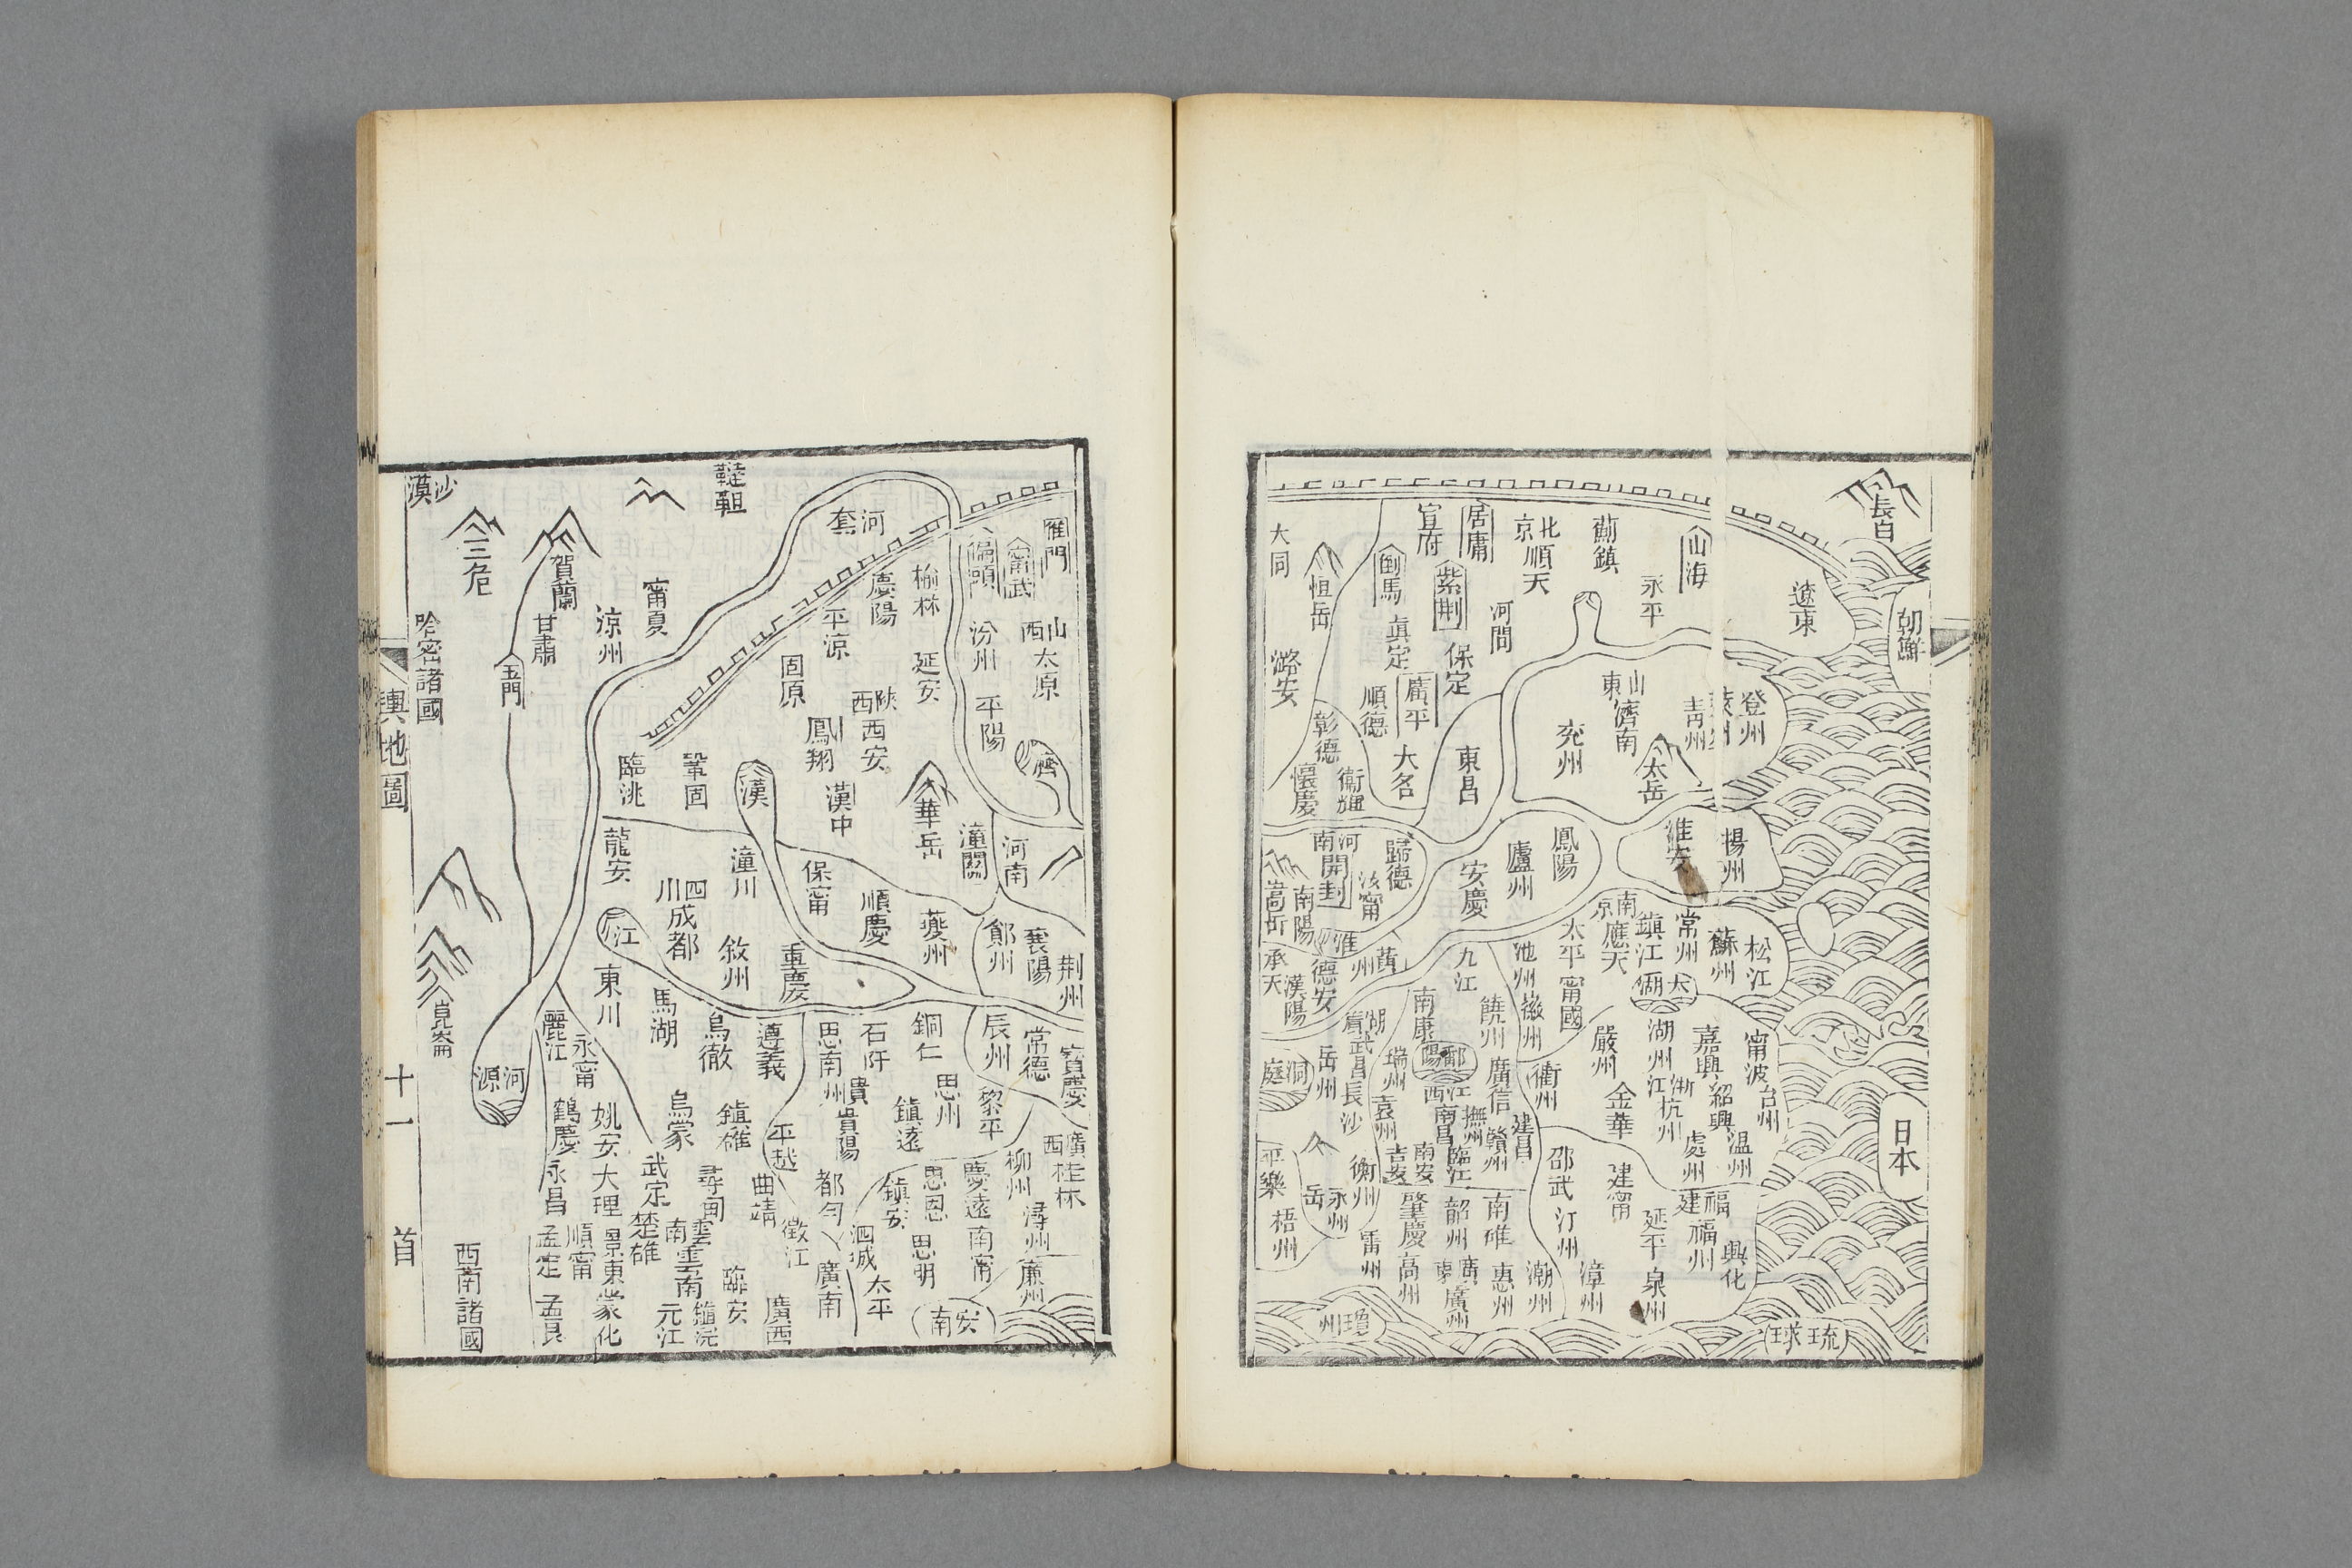 長白
朝鮮
日本
琉球
遼東
山海
永平
薊鎮
北京
順天
居庸
宣府
紫荊
倒馬
恒岳
大同
河間
保定
真定
順德
廣平
大名
潞安
彰德
懷慶
衞輝
東昌
山東
濟南
兗州
青州
登州
太岳
揚州
淮安
鳳陽
廬州
安慶
歸德
汝甯
河南
開封
南陽
嵩岳
淮
黃州
德安
承天
漢陽
南京
應天
鎮江
常州
蘇州
松江
太湖
太平
甯國
池州
徽州
九江
饒州
南康
鄱陽
廣信
江西
南昌
撫州
建昌
瑞州
袁州
臨江
吉安
南安
贛州
湖廣
武昌
岳州
長沙
洞庭
衡州
永州
岳
平樂
梧州
嘉興
湖州
浙江
杭州
嚴州
金華
衢州
紹興
甯波
台州
溫州
處州
福建
福州
興化
建甯
延平
泉州
邵武
汀州
漳州
潮州
惠州
南雄
韶州
廣東
廣州
肇慶
高州
雷州
瓊州
雁門
甯武
偏頭
山西
太原
汾州
平陽
濟
河套
韃靼
榆林
延安
慶陽
平涼
固原
陝西
西安
鳳翔
漢中
華岳
潼關
河南
甯夏
涼州
賀蘭
甘肅
玉門
三危
沙漠
哈密諸國
臨洮
鞏固
漢
龍安
潼川
保甯
順慶
夔州
鄖州
襄陽
荆州
四川
成都
敘州
重慶
江
東川
馬湖
烏徹
遵義
烏蒙
鎮雄
崑崙
河源
麗江
永甯
鶴慶
姚安
大理
永昌
孟定
順甯
景東
蒙化
孟艮
武定
楚雄
尋甸
雲南
雲南
元江
臨安
曲靖
徵江
廣西
廣南
思南
石阡
銅仁
貴州
貴陽
思州
鎮遠
平越
都勻
黎平
辰州
常德
寶慶
廣西
桂林
柳州
慶遠
潯州
南甯
思恩
鎮安
泗城
思明
太平
廉州
安南
西南諸國
輿地圖
十一
首